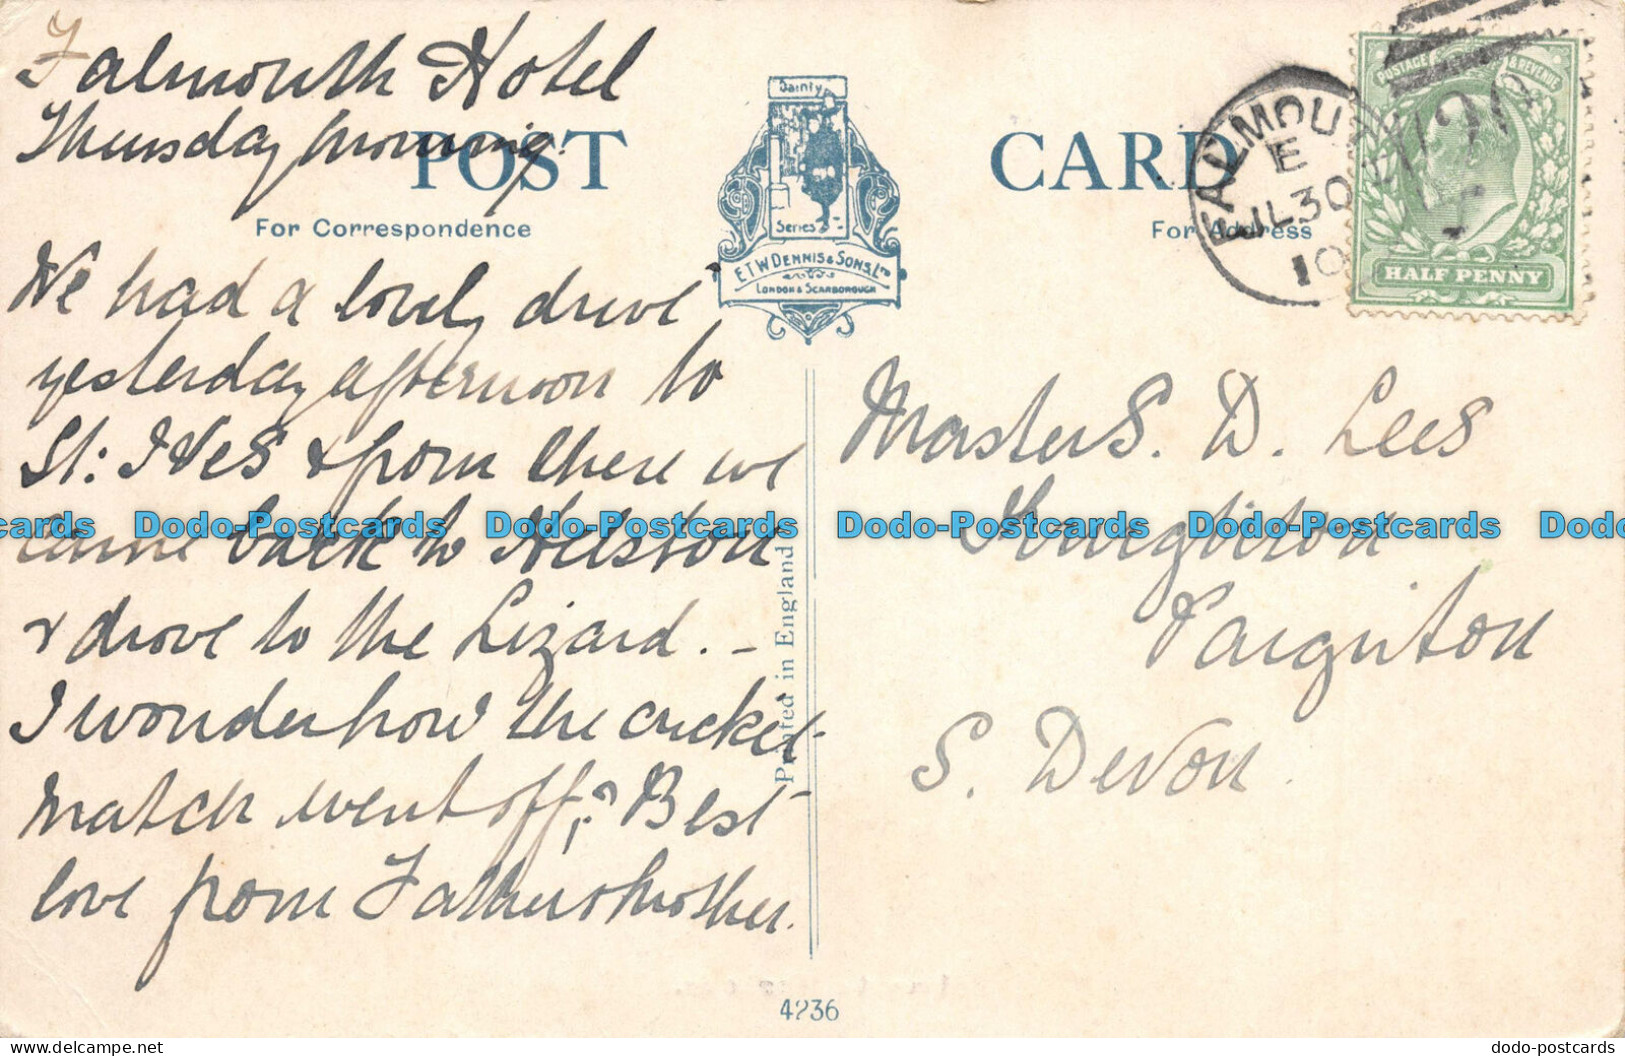 Falmouth Hotel
Thursday morning.
POST CARD
For Correspondence
For Address
Dainty
Series
E.T.W. DENNIS & SONS, LTD
LONDON & SCARBOROUGH
FALMOUTH
E
JL 30
10
POSTAGE & REVENUE
HALF PENNY
We had a lovely drive
yesterday afternoon to
St: Ives & from there we
came back to Helston
& drove to the Lizard. -
I wonder how the cricket
match went off? Best
love from Father & Mother.
Master S. D. Lees
Paignton
S. Devon.
Printed in England
4236
cards Dodo-Postcards Dodo-Postcards Dodo-Postcards Dodo-Postcards Dodo-
dodo-postcards.com